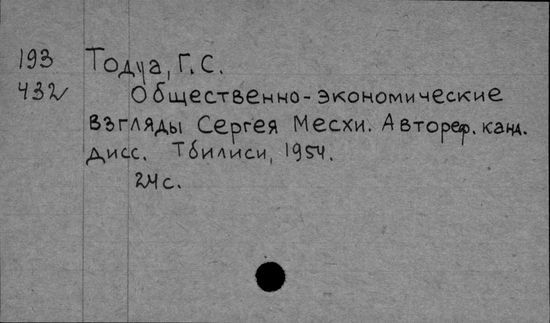 193 Тодуа, Г. С.
432 Общественно-экономические
взгляды Сергея Месхи. Автореф. канд.
дисс. Тбилиси, 1954.
24 с.